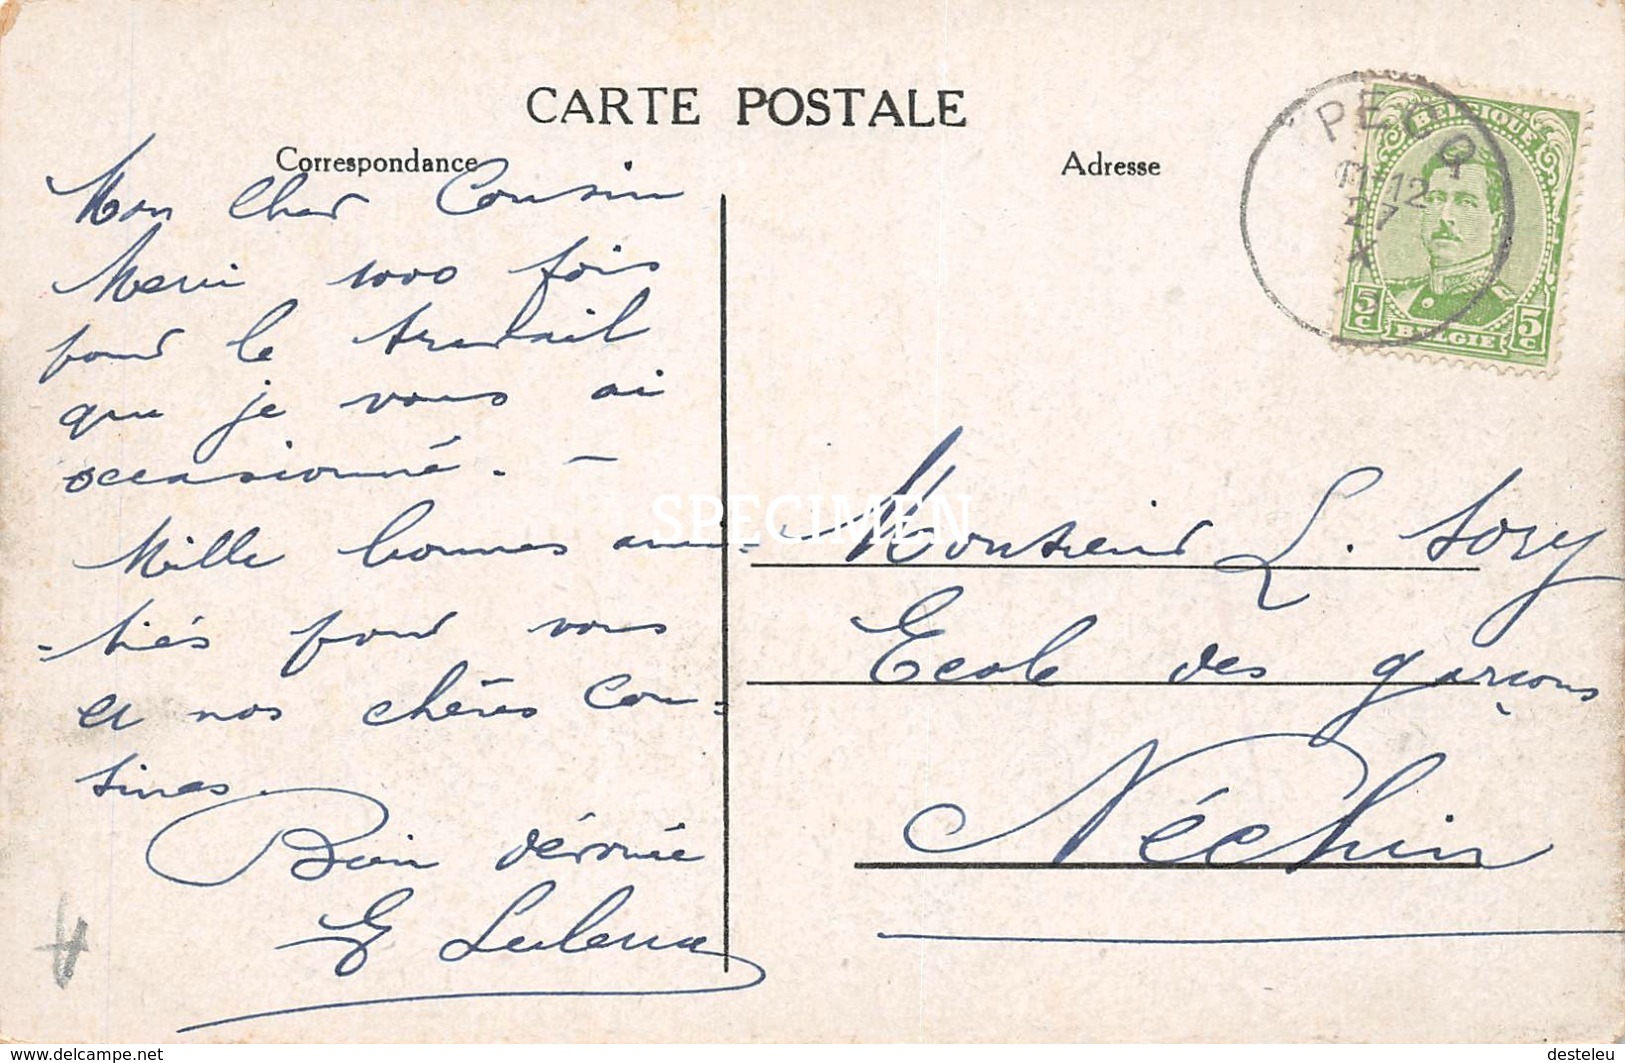 CARTE POSTALE
Correspondance
Adresse
Mon cher Cousin
Merci 1000 fois
pour le travail
que je vous ai
occasionné. –
Mille bonnes ami=
=tiés pour vous
et nos chères cou=
sines.
Bien dévouée
E
PECQ
11-12
27
X
BELGIQUE
5c
5c
BELGIE
SPECIMEN
Monsieur L. Sory
Ecole des garçons
Néchin
www.delcampe.net
desteleu